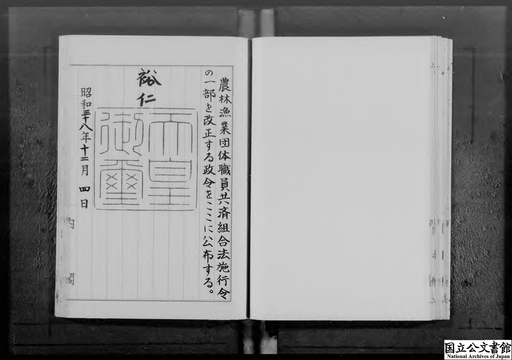 農林漁業団体職員共済組合法施行令
の一部を改正する政令をここに公布する。
裕仁
天皇
御璽
昭和三十八年十二月四日
国立公文書館
National Archives of Japan